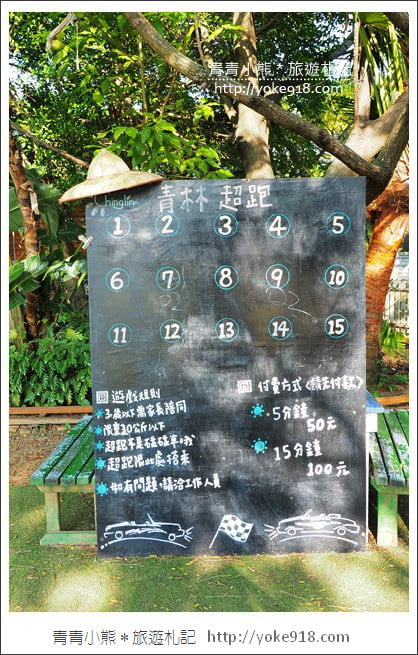 青青小熊＊旅遊札記
http://yoke918.com
Chinglin
青林 超跑
1 2 3 4 5
6 7 8 9 10
02 02
11 12 13 14 15
回 遊戲規則
3歲以下需家長陪同
限重30公斤以下
超跑不是碰碰車哦
超跑限此處搭乘
如有問題，請洽工作人員
回 付費方式(請先付款)
5分鐘
50元
15分鐘
100元
青青小熊＊旅遊札記 http://yoke918.com